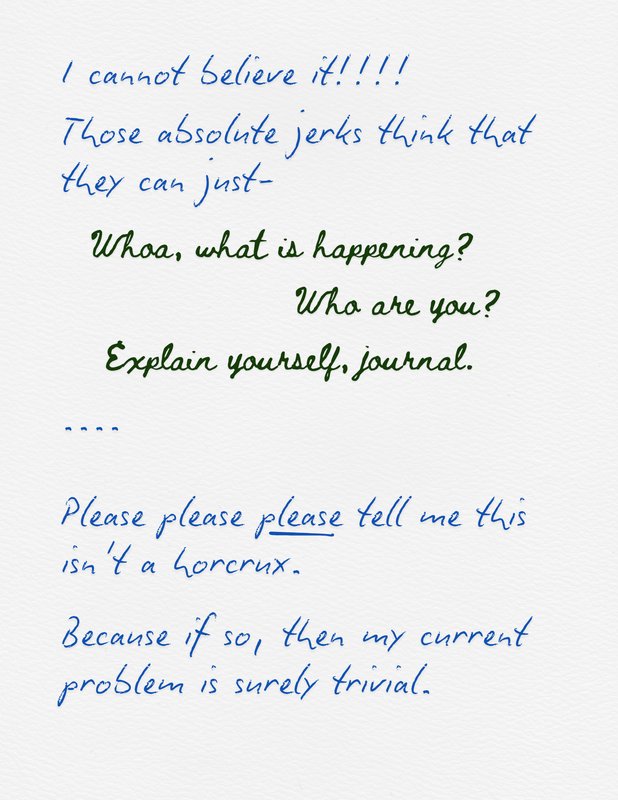 I cannot believe it!!!!
Those absolute jerks think that
they can just-
Whoa, what is happening?
Who are you?
Explain yourself, journal.
----
Please please please tell me this
isn't a horcrux.
Because if so, then my current
problem is surely trivial.